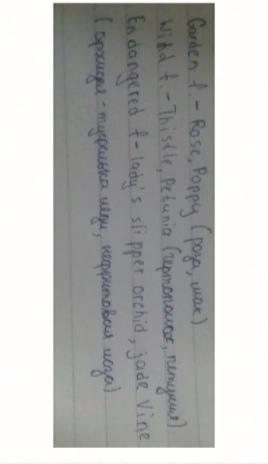 Garden f. - Rose, Poppy (роза, мак)
Wild f. - Thistle, Petunia (чертополох, петуния)
Endangered f - lady's slipper orchid, jade vine
(орхидея - туфелька леди, нефритовая лоза)